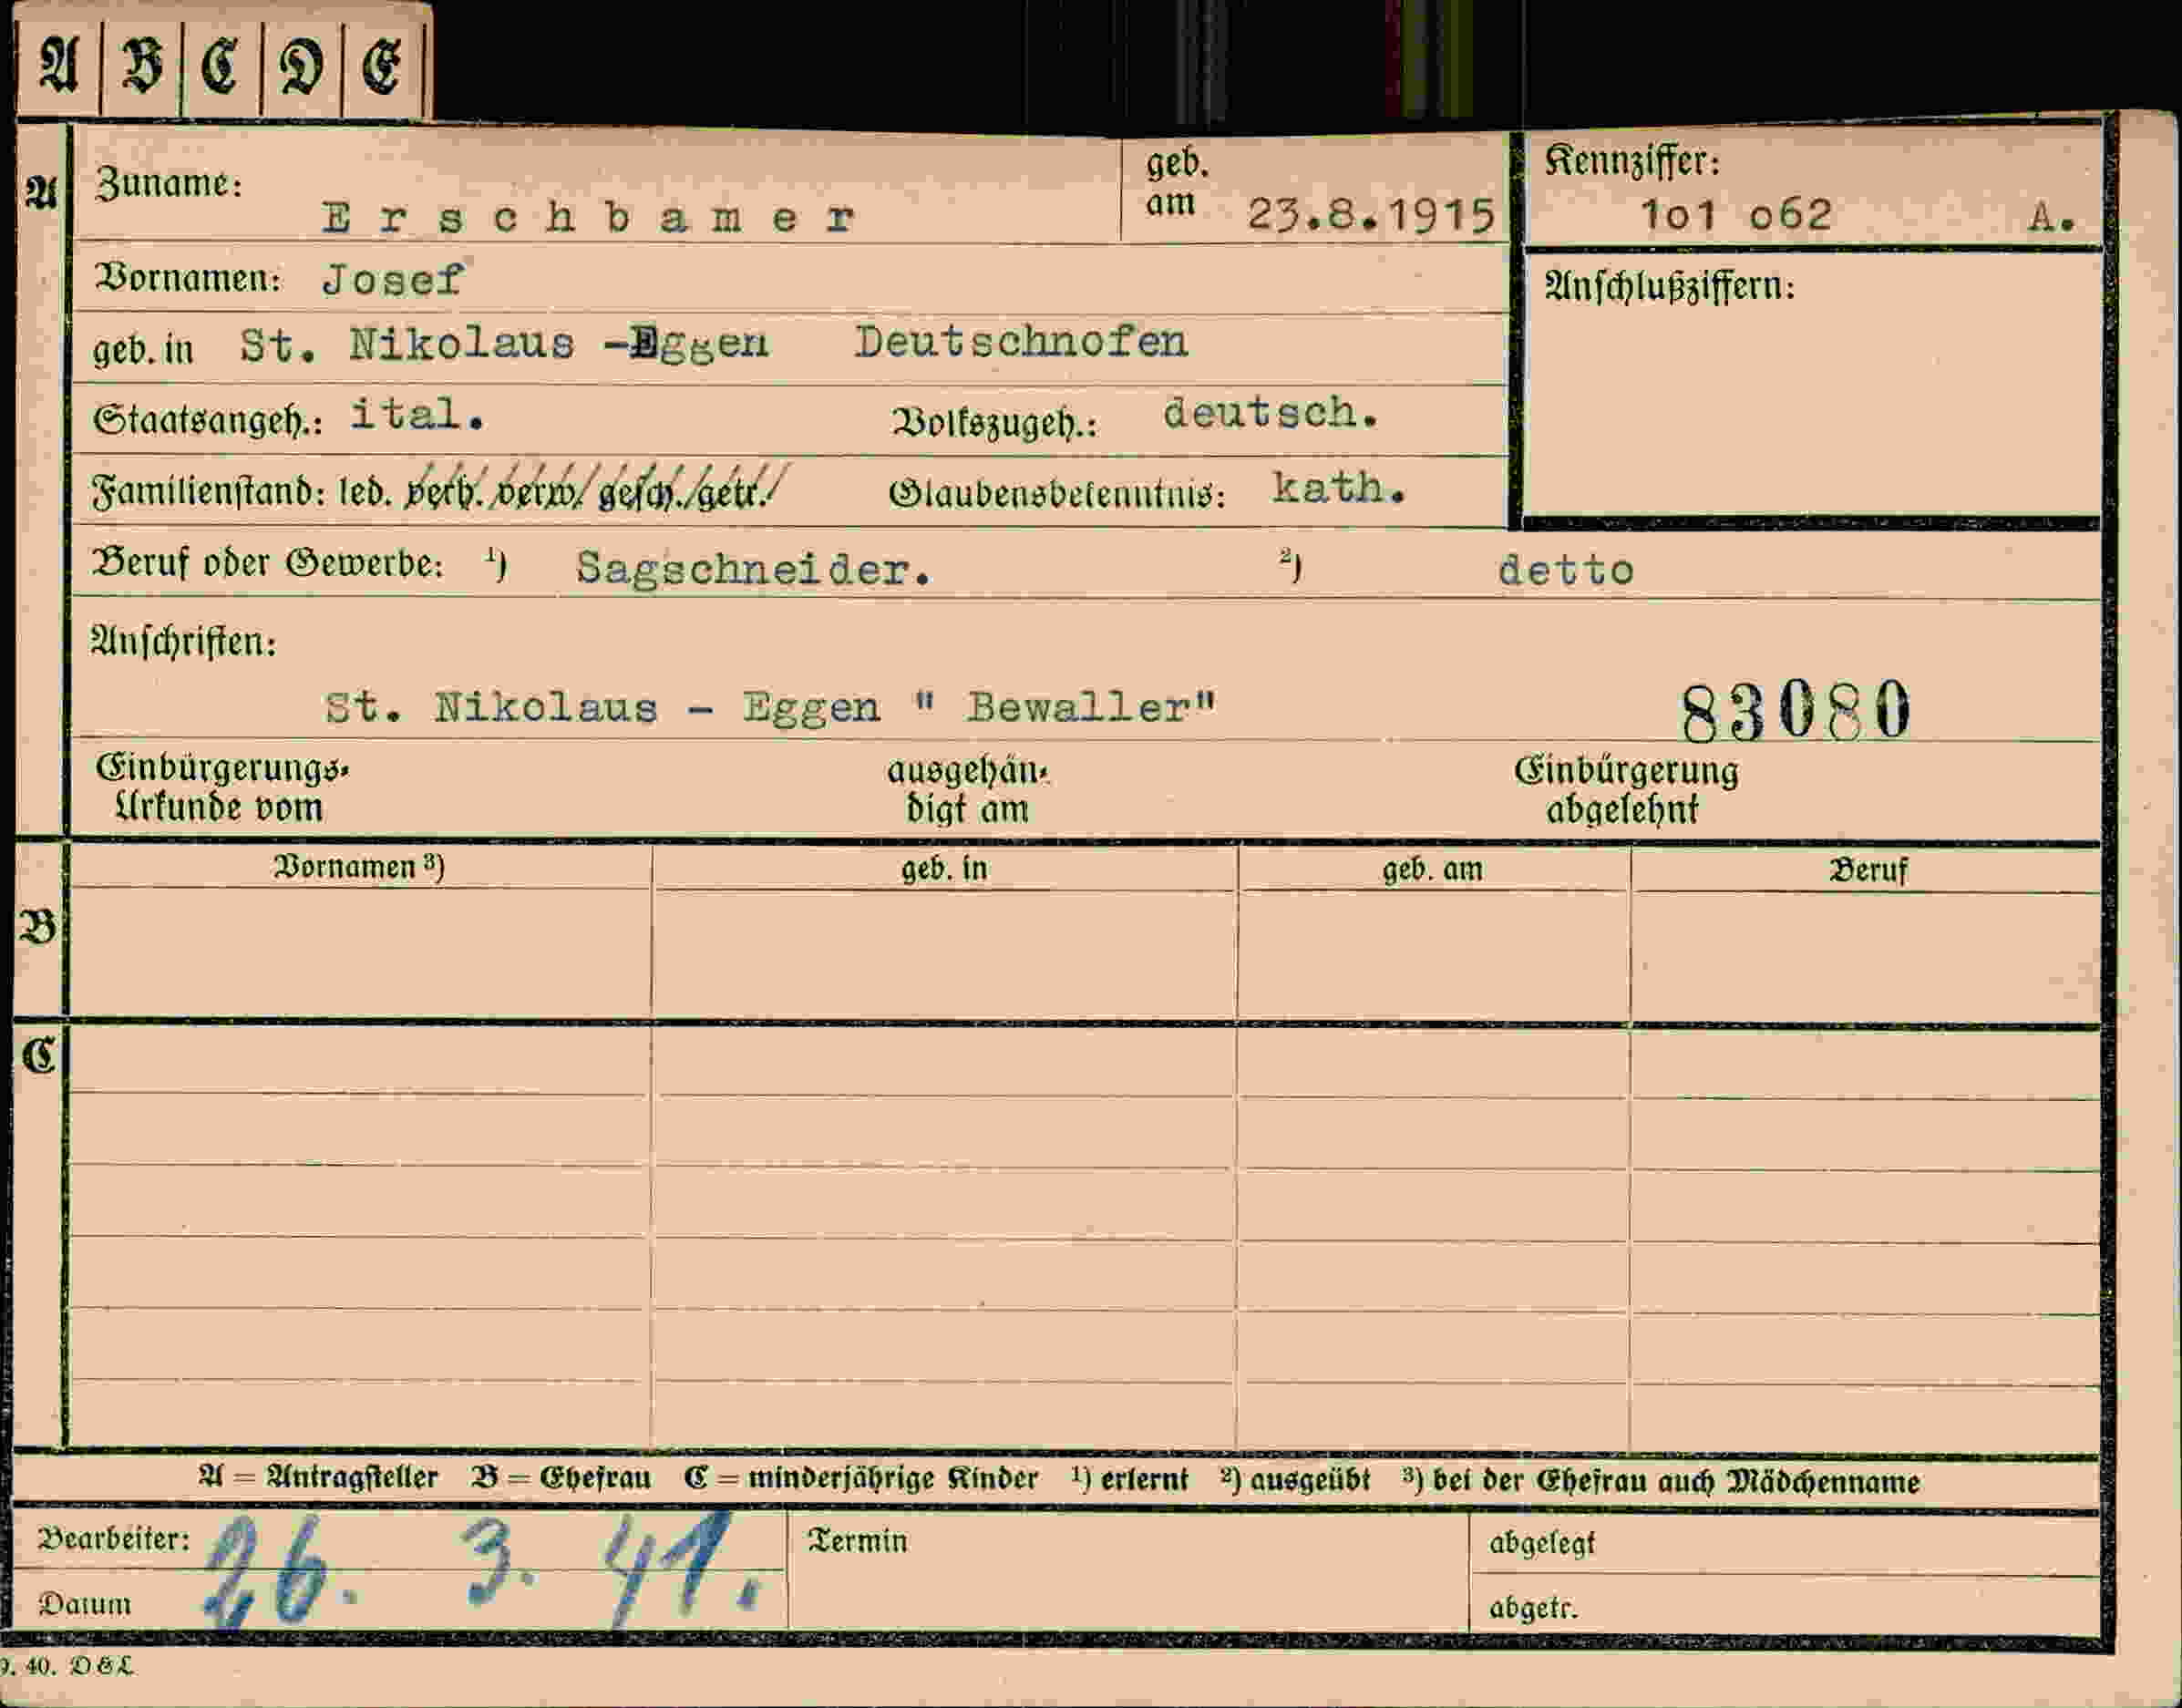 A B C D E
A Zuname: Erschbamer geb. am 23.8.1915 Kennziffer: 1o1 o62 A.
Vornamen: Josef Anschlußziffern:
geb. in St. Nikolaus -Eggen Deutschnofen
Staatsangeh.: ital. Volkszugeh.: deutsch.
Familienstand: led. verh. verw. gesch. getr. Glaubensbekenntnis: kath.
Beruf oder Gewerbe: ¹) Sagschneider. ²) detto
Anschriften:
St. Nikolaus - Eggen " Bewaller" 83080
Einbürgerungs- ausgehän- Einbürgerung
Urkunde vom digt am abgelehnt
Vornamen ³) geb. in geb. am Beruf
B
C
A = Antragsteller B = Ehefrau C = minderjährige Kinder ¹) erlernt ²) ausgeübt ³) bei der Ehefrau auch Mädchenname
Bearbeiter: 26. 3. 41. Termin abgelegt
Datum abgetr.
9. 40. D & L